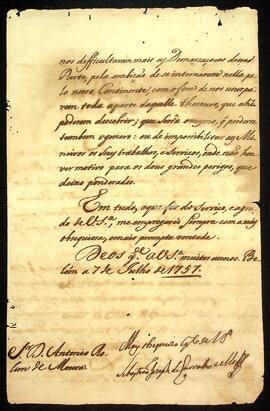 nos difficultarem mais as Demarcaçoens dessa
Parte, pela ambição de se internarem nella pe
lo novo Continente, com o fim de nos usurpa
rem toda a parte daquelle Thesouro, que ahi
poderem descubrir; que seria o mesmo, q̃ poderse
tambem o outro: ou de impossibilitar aos Mi
neiros os seus trabalhos, e serviços, onde não hou
ver motivo para os dous grandes perigos, que
deixo ponderados.
Em tudo, o que for do serviço, e agra
do de V.S.ª, me empregarei sempre com a mais
obsequiosa, e mais prompta vontade.
Deos g.de a V.S.ª muitos annos. Be
lem a 7 de Julho de 1757.
S.r D. Antonio Ro
lim de Moura.
Mayor
de V.S.
Joseph de Carvalho e Mello